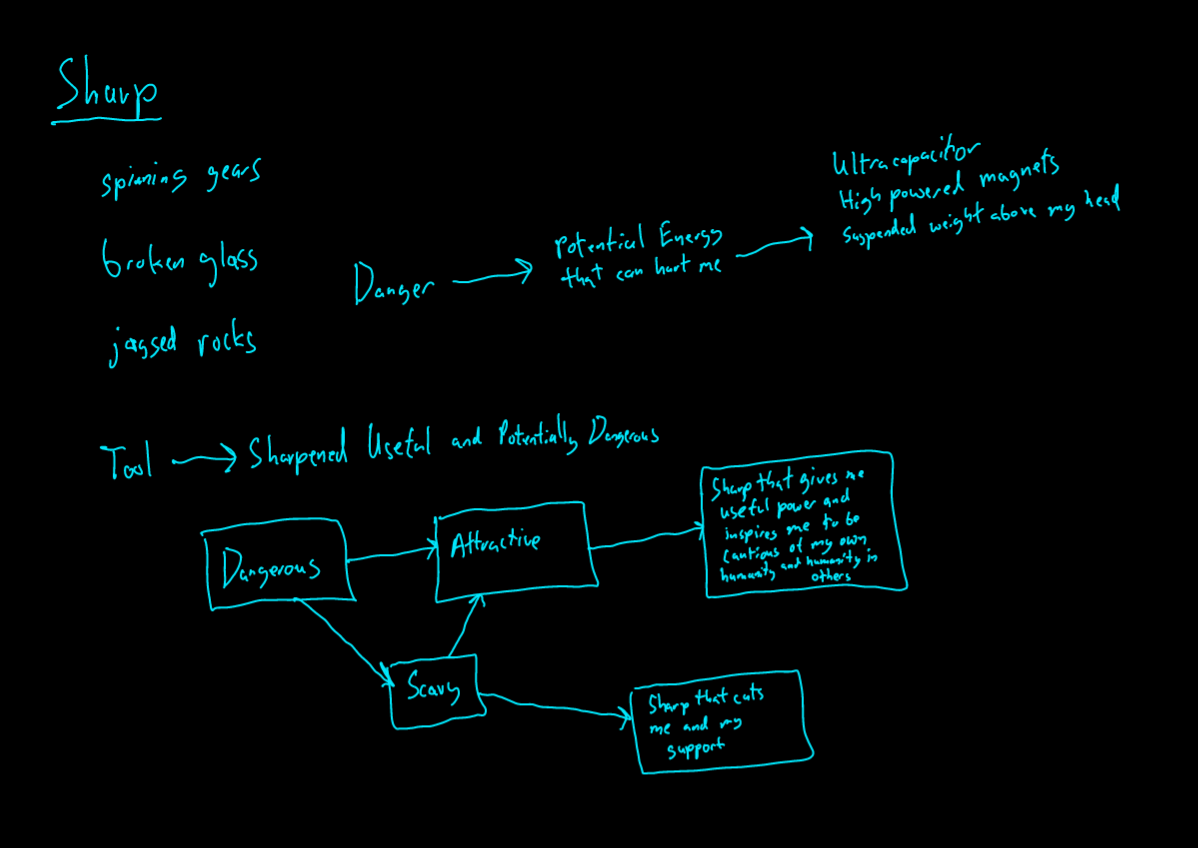 Sharp
spinning gears
broken glass
jagged rocks
Danger
Potential Energy
that can hurt me
Ultracapacitor
High powered magnets
Suspended weight above my head
Tool
Sharpened Useful and Potentially Dangerous
Dangerous
Attractive
Sharp that gives me
useful power and
inspires me to be
cautious of my own
humanity and humanity in
others
Scary
Sharp that cuts
me and my
support